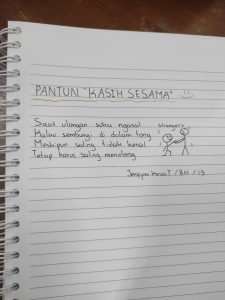 PANTUN "KASIH SESAMA"
Saat ulangan suka ngasal
strangers
Kalau sembunyi di dalam tong
Meskipun saling tidak kenal
Tetap harus saling menolong
/ 8H / 13